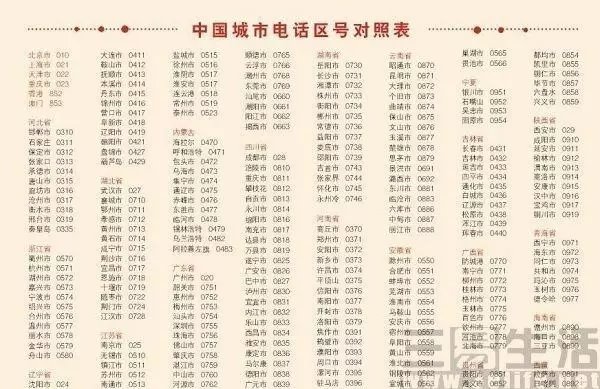 中国城市电话区号对照表
北京市 010
上海市 021
天津市 022
重庆市 023
香港 852
澳门 853
河北省
邯郸市 0310
石家庄 0311
保定市 0312
张家口 0313
承德市 0314
唐山市 0315
廊坊市 0316
沧州市 0317
衡水市 0318
邢台市 0319
秦皇岛 0335
浙江省
衢州市 0570
杭州市 0571
湖州市 0572
嘉兴市 0573
宁波市 0574
绍兴市 0575
台州市 0576
温州市 0577
丽水市 0578
金华市 0579
舟山市 0580
辽宁省
沈阳市 024
大连市 0411
鞍山市 0412
抚顺市 0413
本溪市 0414
丹东市 0415
锦州市 0416
营口市 0417
阜新市 0418
辽阳市 0419
朝阳市 0421
盘锦市 0427
葫芦岛 0429
湖北省
武汉市 027
襄城市 0710
鄂州市 0711
孝感市 0712
黄州市 0713
黄石市 0714
咸宁市 0715
荆沙市 0716
宜昌市 0717
恩施市 0718
十堰市 0719
随枣市 0722
荆门市 0724
江汉市 0728
江苏省
南京市 025
无锡市 0510
镇江市 0511
苏州市 0512
盐城市 0515
徐州市 0516
淮阴市 0517
淮安市 0517
连云港 0518
常州市 0519
泰州市 0523
内蒙古
海拉尔 0470
呼和浩特 0471
包头市 0472
乌海市 0473
集宁市 0474
通辽市 0475
赤峰市 0476
东胜市 0477
临河市 0478
锡林浩特 0479
乌兰浩特 0482
阿拉善左旗 0483
广东省
广州市 020
韶关市 0751
惠州市 0752
梅州市 0753
汕头市 0754
深圳市 0755
珠海市 0756
佛山市 0757
肇庆市 0758
湛江市 0759
中山市 0760
顺德市 0765
云浮市 0766
潮州市 0768
东莞市 0769
汕尾市 0660
潮阳市 0661
阳江市 0662
揭西市 0663
四川省
成都市 028
涪陵市 0810
重庆市 0811
攀枝花 0812
自贡市 0813
永川市 0814
绵阳市 0816
南充市 0817
达县市 0818
万县市 0819
遂宁市 0825
广安市 0826
巴中市 0827
泸州市 0830
宜宾市 0831
内江市 0832
乐山市 0833
西昌市 0834
雅安市 0835
康定市 0836
马尔康 0837
德阳市 0838
广元市 0839
泸州市 0840
湖南省
岳阳市 0730
长沙市 0731
湘潭市 0732
株州市 0733
衡阳市 0734
郴州市 0735
常德市 0736
益阳市 0737
娄底市 0738
邵阳市 0739
吉首市 0743
张家界 0744
怀化市 0745
永州冷 0746
河南省
商丘市 0370
郑州市 0371
安阳市 0372
新乡市 0373
许昌市 0374
平顶山 0375
信阳市 0376
南阳市 0377
开封市 0378
洛阳市 0379
焦作市 0391
鹤壁市 0392
濮阳市 0393
周口市 0394
漯河市 0395
驻马店 0396
云南省
昭通市 0870
昆明市 0871
大理市 0872
个旧市 0873
曲靖市 0874
保山市 0875
文山市 0876
玉溪市 0877
楚雄市 0878
思茅市 0879
景洪市 0691
潞西市 0692
东川市 0881
临沧市 0883
六库市 0886
中甸市 0887
丽江市 0888
安徽省
滁州市 0550
合肥市 0551
蚌埠市 0552
芜湖市 0553
淮南市 0554
马鞍山 0555
安庆市 0556
宿州市 0557
阜阳市 0558
黄山市 0559
淮北市 0561
铜陵市 0562
宣城市 0563
六安市 0564
巢湖市 0565
贵池市 0566
宁夏
银川市 0951
石嘴山 0952
吴忠市 0953
固原市 0954
吉林省
长春市 0431
吉林市 0432
延吉市 0433
四平市 0434
通化市 0435
白城市 0436
辽源市 0437
松原市 0438
浑江市 0439
珲春市 0440
广西省
防城港 0770
南宁市 0771
柳州市 0772
桂林市 0773
梧州市 0774
玉林市 0775
百色市 0776
钦州市 0777
河池市 0778
北海市 0779
都均市 0854
凯里市 0855
铜仁市 0856
毕节市 0857
六盘水 0858
兴义市 0859
陕西省
西安市 029
咸阳市 0910
延安市 0911
榆林市 0912
渭南市 0913
商洛市 0914
安康市 0915
汉中市 0916
宝鸡市 0917
铜川市 0919
青海省
西宁市 0971
海东市 0972
同仁市 0973
共和市 0974
玛沁市 0975
玉树市 0976
德令哈 0977
海南省
儋州市 0890
海口市 0898
三亚市 0899